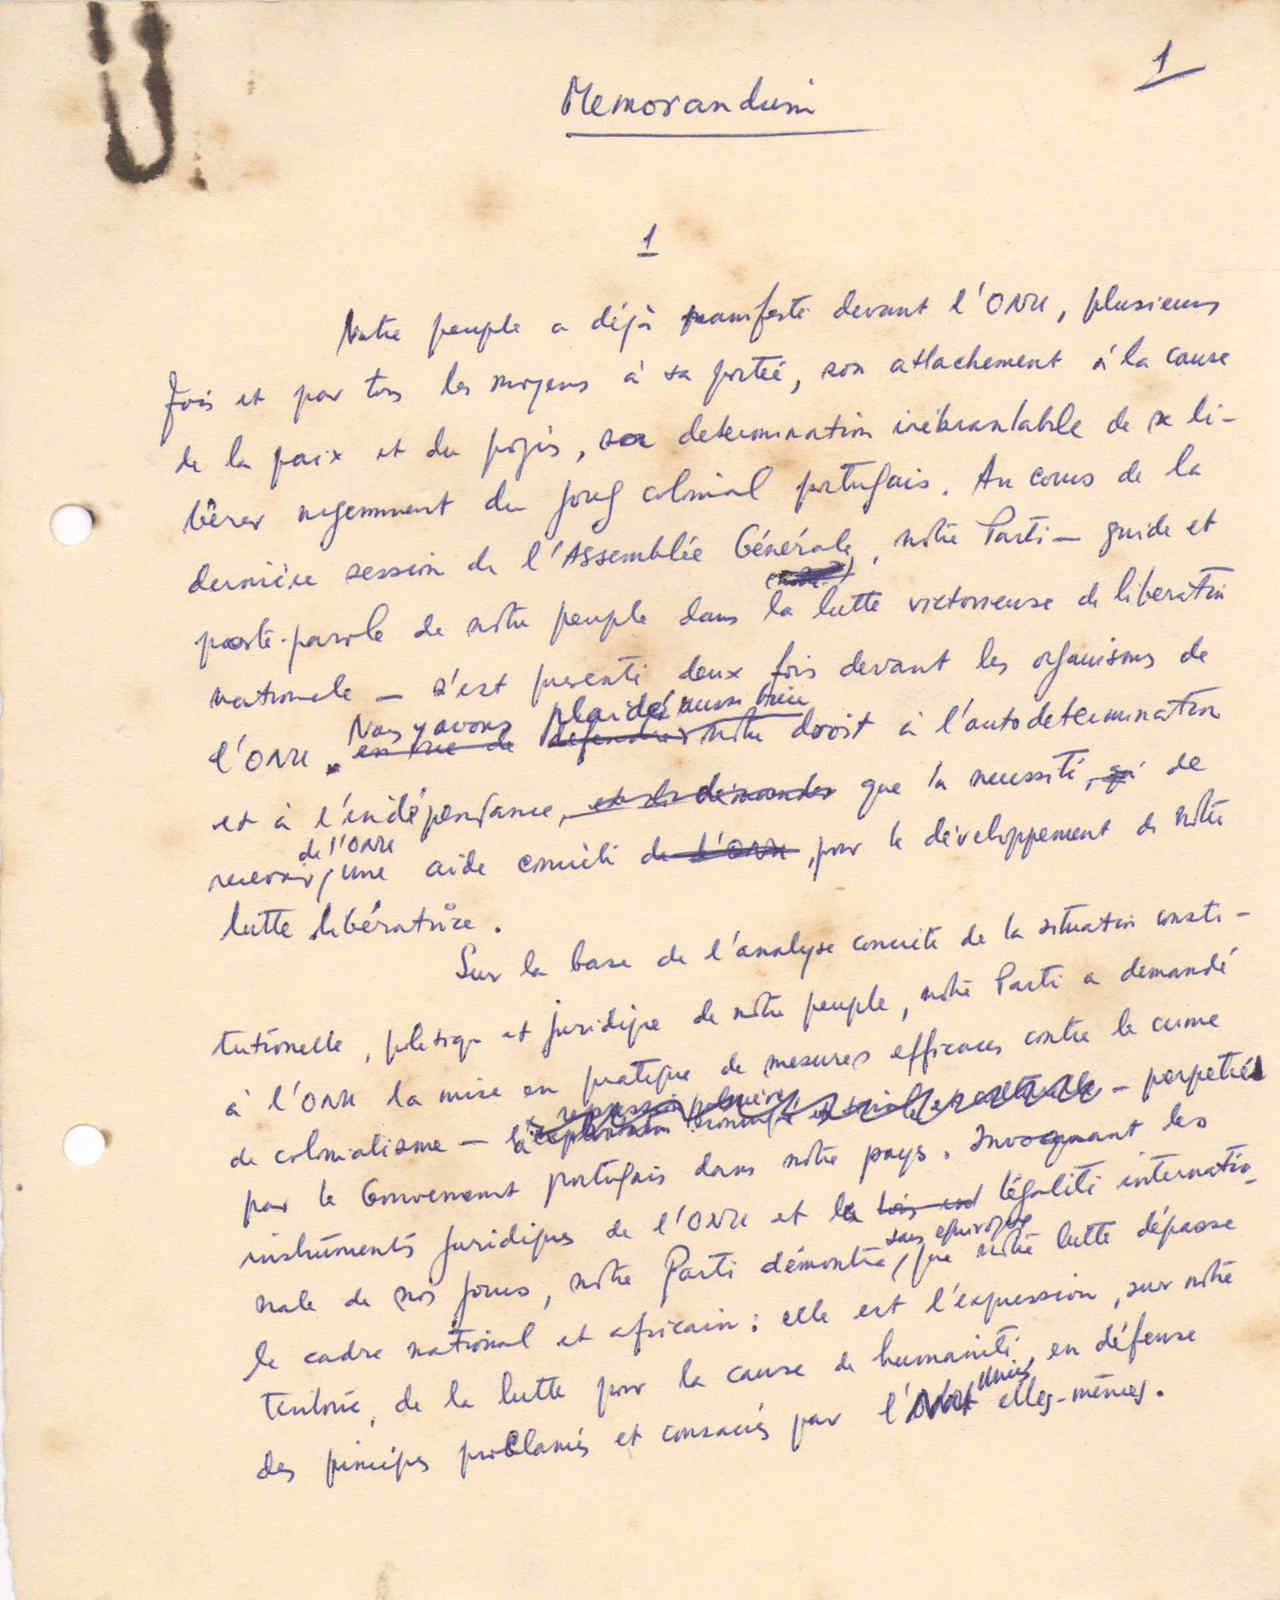 1
Memorandum
1
Notre peuple a déjà manifesté devant l'ONU, plusieurs
fois et par tous les moyens à sa portée, son attachement à la cause
de la paix et du progrès, sa determination inébranlable de se li-
bérer urgemment du joug colonial portugais. Au cours de la
dernière session de l'Assemblée Générale, notre Parti — guide et
porte-parole de notre peuple dans la lutte victorieuse de liberation
nationale — s'est presenté deux fois devant les organismes de
Nous y avons plaidé aussi bien
l'ONU. en vue de défendre notre droit à l'autodetermination
et à l'indépendance, et de demander que la necessité, de
de l'ONU
recevoir, une aide concrète de l'ONU, pour le développement de notre
lutte libératrice.
Sur la base de l'analyse concrète de la situation consti-
tutionelle, politique et juridique de notre peuple, notre Parti a demandé
à l'ONU la mise en pratique de mesures efficaces contre le crime
de colonialisme — perpetré
par le Gouvernement portugais dans notre pays. Invoquant les
instruments juridiques de l'ONU et la légalité internatio-
sans équivoque
nale de nos jours, notre Parti démontra, que notre lutte dépasse
le cadre national et africain: elle est l'expression, sur notre
territoire, de la lutte pour la cause de humanité, en défense
Unies
des principes proclamés et consacrés par elles-mêmes.